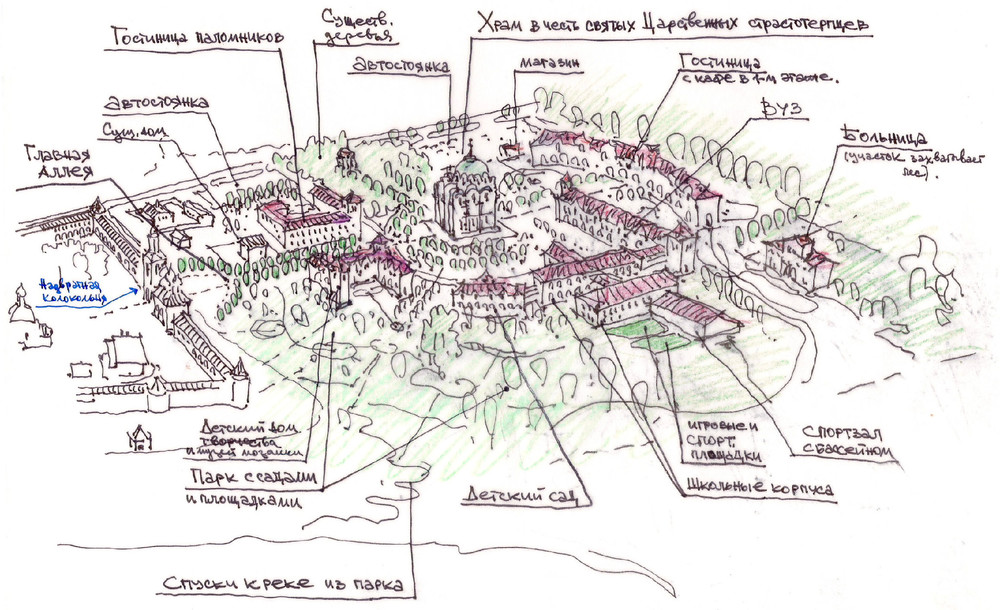 Гостиница паломников
Существ.
деревья
Храм в честь святых Царственных страстотерпцев
Автостоянка
магазин
Гостиница
с кафе в 1-м этаже.
ВУЗ
Больница
(участок захватывает
лес).
Автостоянка
Сущ. дом
Главная
Аллея
Надвратная
колокольня
Детский дом
творчества
и музей мозаики
Парк с садами
и площадками
Детский сад
игровые и
спорт.
площадки
Школьные корпуса
Спортзал
с бассейном
Спуски к реке из парка